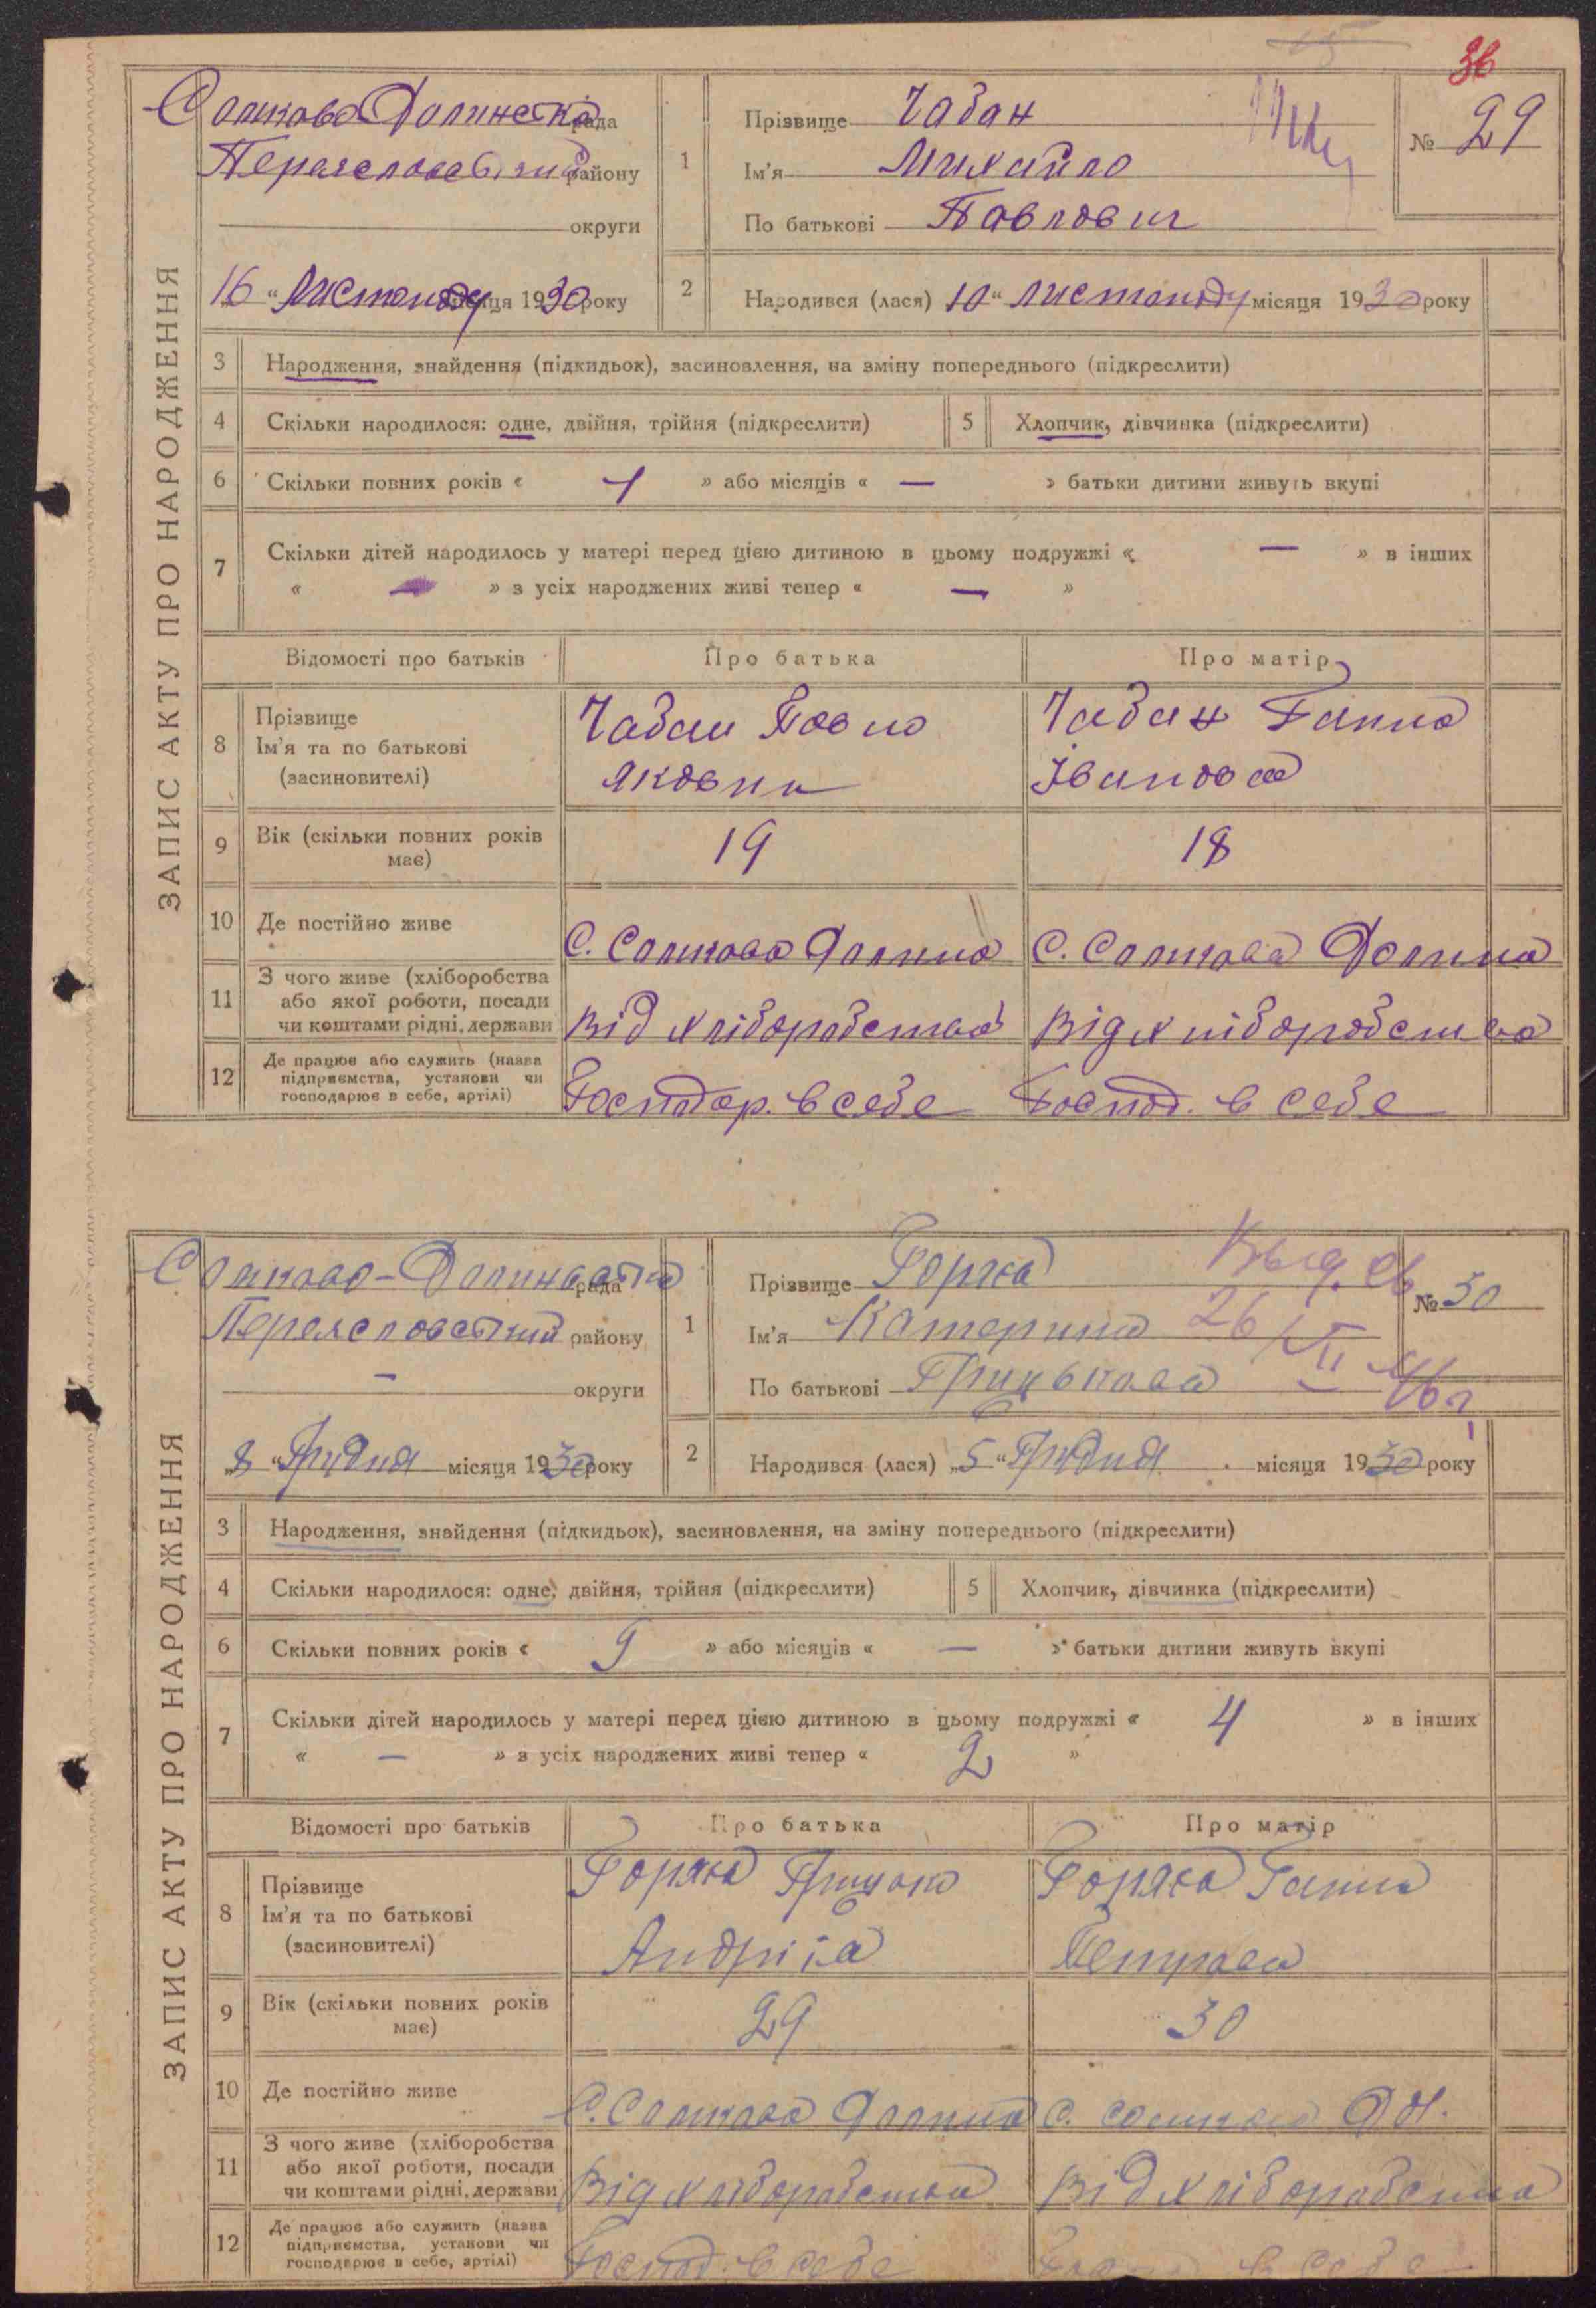 36
ЗАПИС АКТУ ПРО НАРОДЖЕННЯ
Солонково Долинська рада
Переяславський району
округи
"16" Листопаду місяця 1930 року
1
Прізвище Чабан
Ім'я Михайло
По батькові Павлович
№ 29
2 Народився (лася) 10 "листопаду місяця 1930 року
3 Народження, знайдення (підкидьок), засиновлення, на зміну попереднього (підкреслити)
4 Скільки народилося: одне, двійня, трійня (підкреслити) 5 Хлопчик, дівчинка (підкреслити)
6 Скільки повних років « 1 » або місяців « — » батьки дитини живуть вкупі
7 Скільки дітей народилось у матері перед цією дитиною в цьому подружжі « — » в інших
« — » з усіх народжених живі тепер « — »
Відомості про батьків Про батька Про матір
8 Прізвище Ім'я та по батькові (засиновителі)
Чабан Павло Якович
Чабан Ганна Іванова
9 Вік (скільки повних років має) 19 18
10 Де постійно живе С. Долина С. Долина
11 З чого живе (хліборобства або якої роботи, посади чи коштами рідні, держави Від хліборобства Від хліборобства
12 Де працює або служить (назва підприємства, установи чи господарює в себе, артілі) Господар. в себе Господ. в себе
ЗАПИС АКТУ ПРО НАРОДЖЕННЯ
рада
Переяславський району
— округи
"8" Грудня місяця 1930 року
1
Прізвище Горяка
Ім'я Катерина
По батькові Грицькова
№ 30
Выд. св
26/VII 46 г
2 Народився (лася) "5" Грудня місяця 1930 року
3 Народження, знайдення (підкидьок), засиновлення, на зміну попереднього (підкреслити)
4 Скільки народилося: одне, двійня, трійня (підкреслити) 5 Хлопчик, дівчинка (підкреслити)
6 Скільки повних років « 9 » або місяців « — » батьки дитини живуть вкупі
7 Скільки дітей народилось у матері перед цією дитиною в цьому подружжі « 4 » в інших
« — » з усіх народжених живі тепер « 2 »
Відомості про батьків Про батька Про матір
8 Прізвище Ім'я та по батькові (засиновителі)
Горяка Грицько Андріїв
Горяка Ганна Петрова
9 Вік (скільки повних років має) 29 30
10 Де постійно живе С. Долина С.
11 З чого живе (хліборобства або якої роботи, посади чи коштами рідні, держави Від хліборобства Від хліборобства
12 Де працює або служить (назва підприємства, установи чи господарює в себе, артілі) Господ. в себе в себе